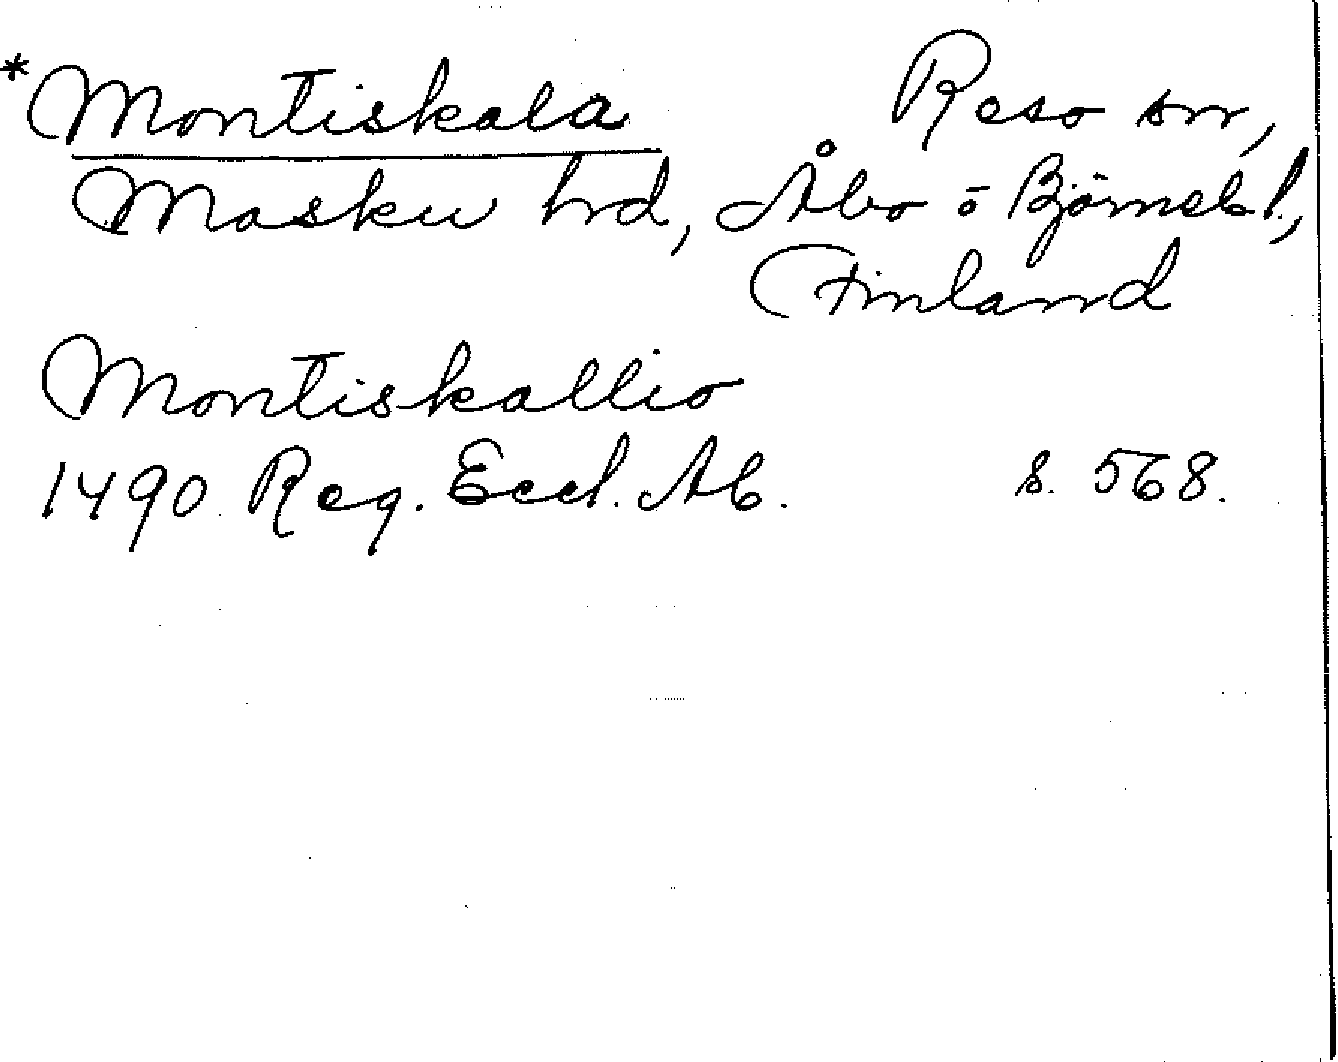 *Montiskala Reso sn,
Masku hd, Åbo o Björneb l.,
Finland
Montiskallio
1490 Reg. Eccl. Ab. s. 568.